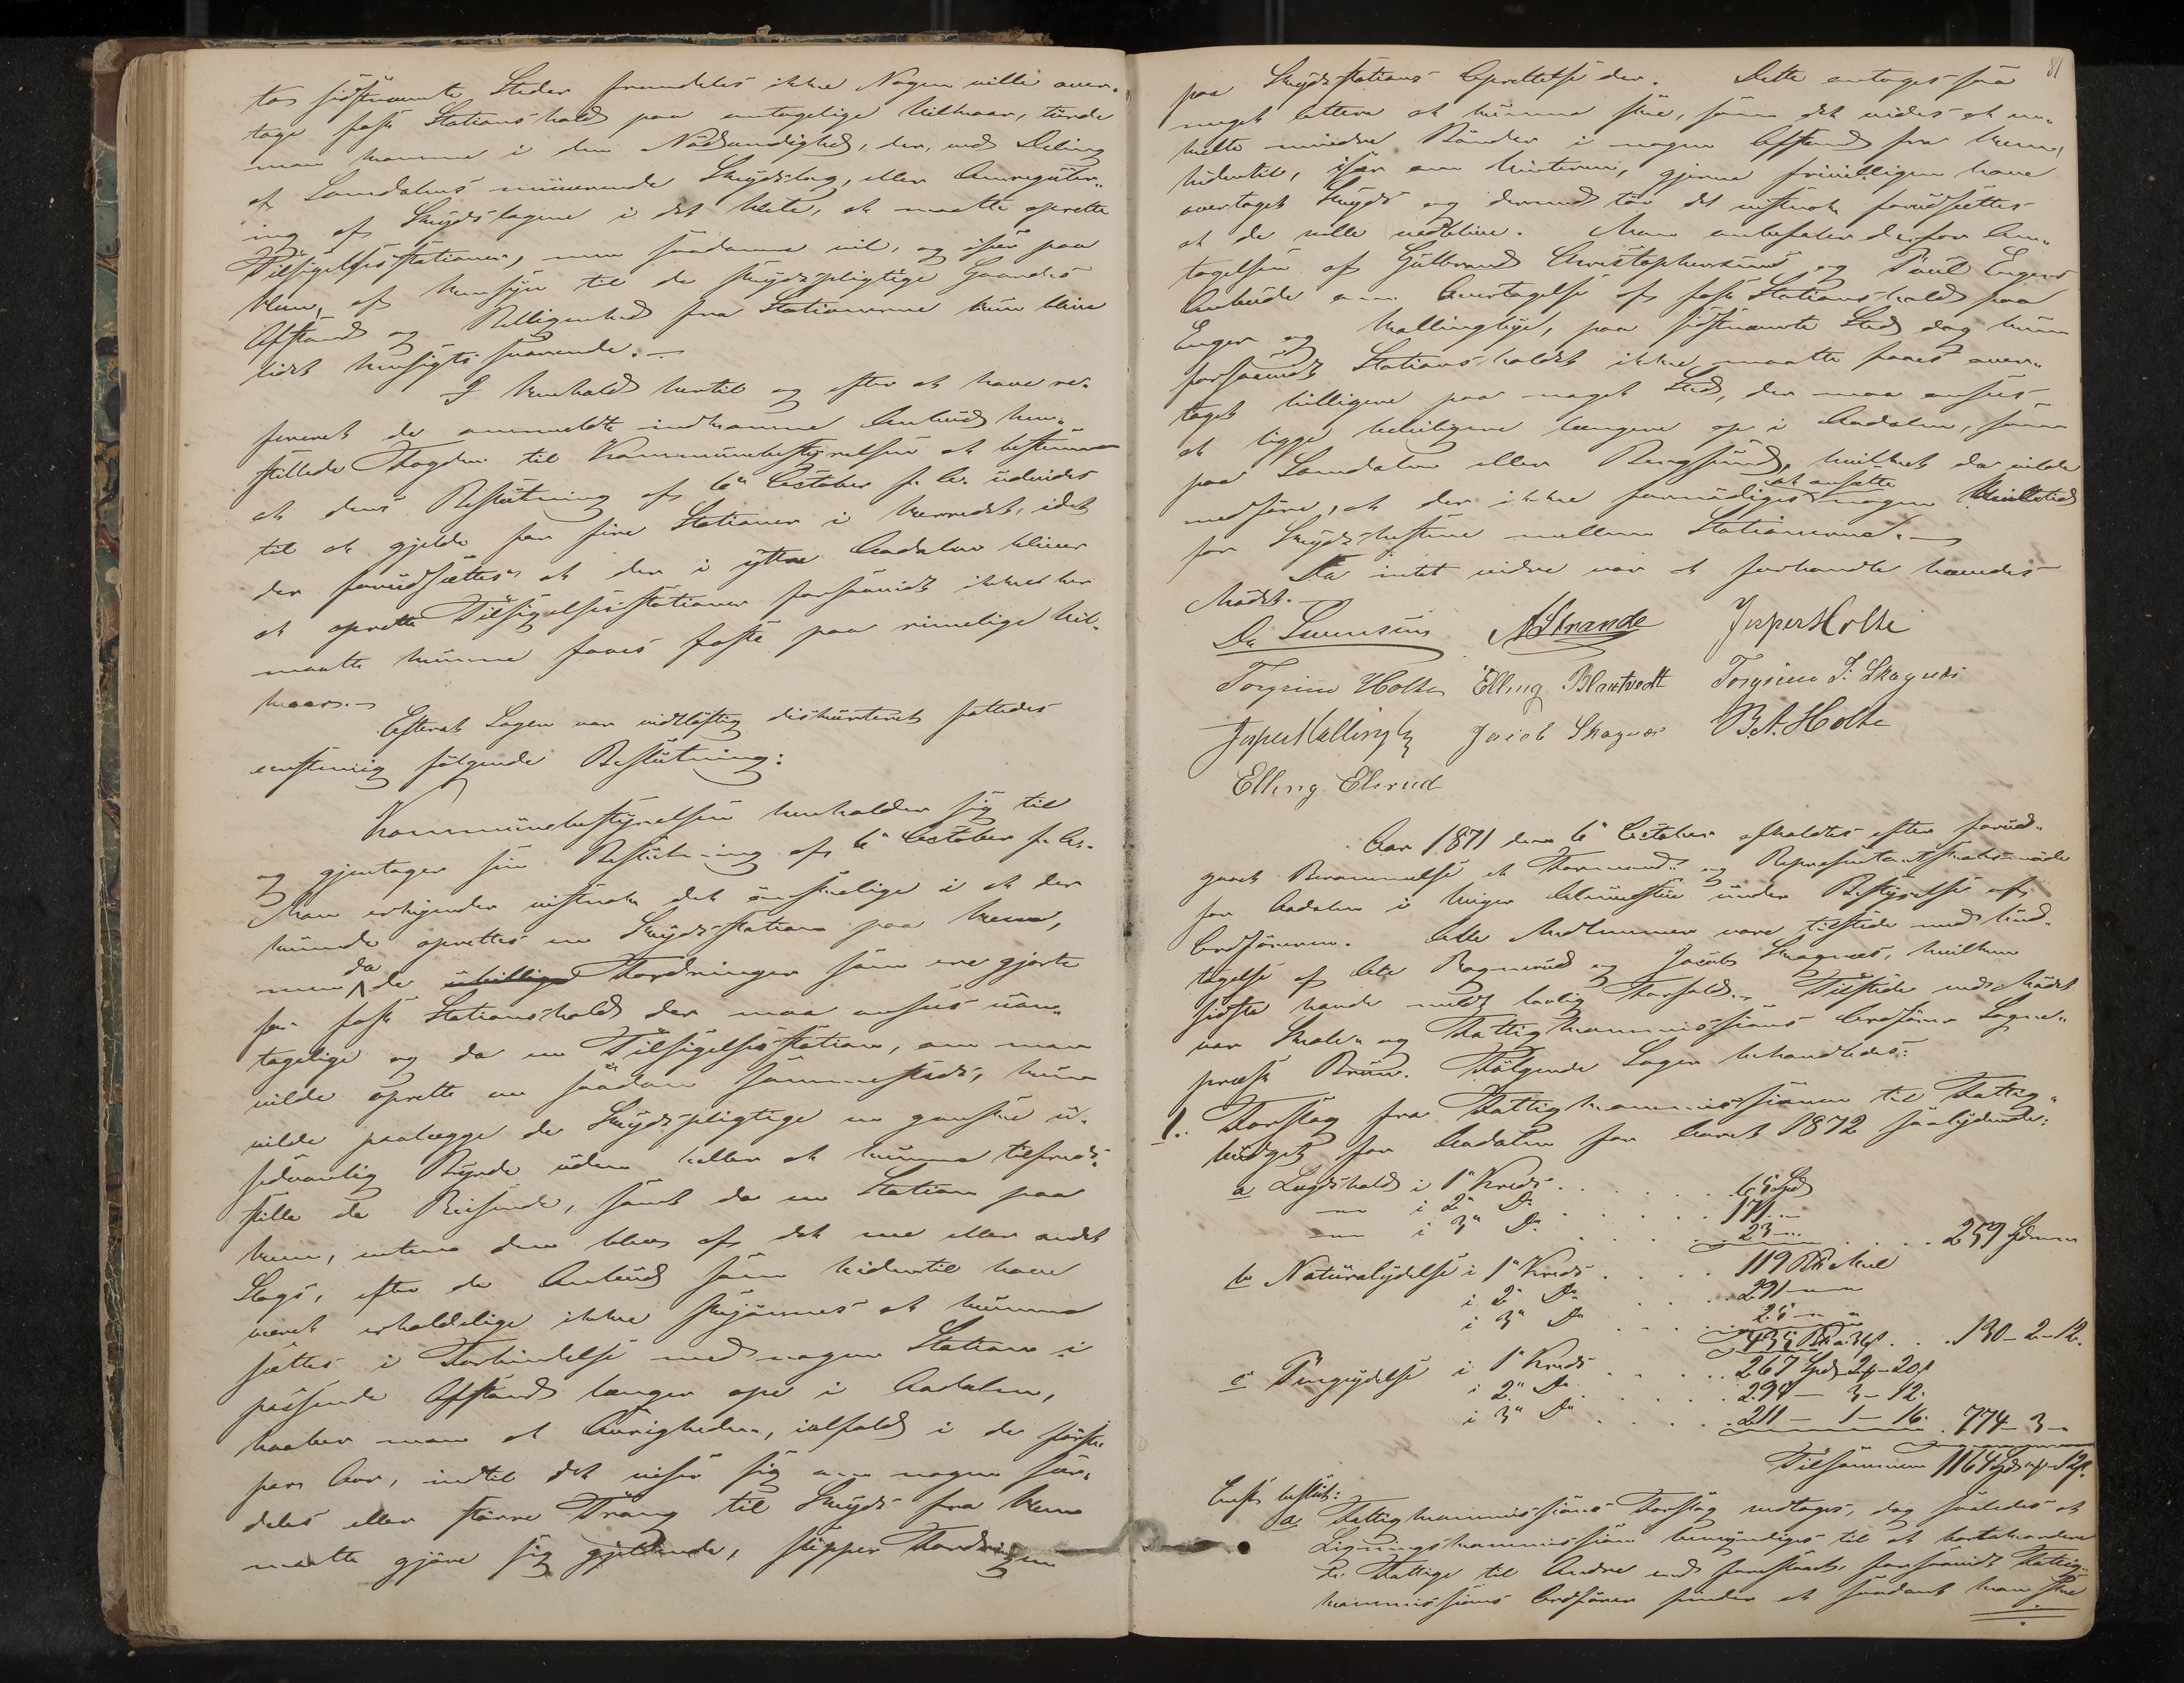 tes sidstnævnte Steder fremdeles ikke Nogen ville over-
tage fast Stationshold paa antagelige Vilkaar, turde
man komme i den Nødvendighed, der, ved Deling
af Somdalens nuværende Skydslag, eller Omreguler-
ing af Skydslagene i det Hele, at maatte oprette
Tilsigelsesstationer, men saadanne vil, og især paa
Hen, af Hensyn til de skydspligtige Gaardes
Afstand og Beliggenhed fra Stationerne kun blive
lidet hensigtssvarende. —
I Henhold hertil og efter at have re-
fereret de anmeldte indkomne Anbud hen-
stillede Fogden til Kommunebestyrelsen at bestemme
at dens Beslutning af 6te October f. A. udvides
til at gjelde for fire Stationer i Herredet, idet
der forudsættes at der i ytre Aadalen bliver
at oprette Tilsigelsesstationer forsaavidt ikke her
maatte kunne faaes faste paa rimelige Vil-
kaar. —
Efterat Sagen var vidtløftig diskuteret fattedes
eenstemmig følgende Beslutning:
Kommunebestyrelsen henholder sig til
og gjentager sin Beslutning af 6te October f. A.
Man erkjender vistnok det ønskelige i at der
kunde oprettes en Skydsstation paa Hen,
men da de ubillige Fordringer som ere gjorte
for fast Stationshold der maa ansees uan-
tagelige og da en Tilsigelsesstation, om man
vilde oprette en saadan sammesteds, kun
vilde paalægge de Skydspligtige en ganske u-
sedvanlig Byrde uden heller at kunne tilfreds-
stille de Reisende, samt da en Station paa
Hen, enten den blev af det ene eller andet
Slags, efter de Anbud som hidentil have
været erholdelige ikke skjønnes at kunne
sættes i Forbindelse med nogen Station i
passende Afstand længer ope i Aadalen,
haaber man at Øvrigheden, ialfald i de første
par Aar, indtil det viser sig om nogen sær-
deles eller større Trang til Skyds fra Hen
maatte gjøre sig gjeldende, slipper Fordringen
81
paa Skydsstations Oprettelse der. Dette antages saa
meget lettere at kunne skee, som det vides at en-
kelte mindre Bønder i nogen Afstand fra Hen,
hidentil, især om Vinteren, gjerne frivilligen have
overtaget Skyds og dermed tør det vistnok forudsættes
at de ville vedblive. Man anbefaler derfor An-
tagelsen af Gulbrand Christophersens og Poul Engers
Anbude om Overtagelse af fast Stationshold paa
Enger og Hallingby, paa sidstnævnte Sted dog kun
forsaavidt Stationsholdet ikke maatte faaes over-
taget billigere paa noget Sted, der maa ansees
at ligge beleiligere længere op i Aadalen, som
paa Somdalen eller Bergsund, hvilket da vilde
medføre, at der ikke fornødiges at ansætte nogen Hviletid
for Skydshestene mellem Stationerne. —
Da intet videre var at forhandle hævedes
Mødet. —
A Strande Jesper Holte
Torgrim Holte Elling Blantvedt Torgrim J. Skagnæs
Jesper Hallingby Jacob Skagnæs B. A. Holte
Elling Elsrud
Aar 1871 den 6te October afholdtes efter forud-
gaaet Berammelse et Formænd- og Repræsentantskabsmøde
for Aadalen i Ringer Almueskole under Bestyrelse af
Ordføreren. Alle Medlemmer vare tilstede med Und-
tagelse af Ole Ragnrud og Jacob Skagnæs, hvilken
sidste havde meldt lovlig Forfald. — Tilstede ved Mødet
var Skole- og Fattigkommissions Ordfører Sogne-
præst Bruun. Følgende Sager behandledes:
1. Forslag fra Fattigkommissionen til Fattig-
budget for Aadalen for Aaret 1872 saalydende:
a Lægdshold i 1ste Kreds . . . . . 65 Spd
— i 2. Do . . . . . 171 —
— i 3. Do . . . . . 23 — . . . 259 Spd —
b Naturalydelse i 1ste Kreds . . . . 119 Bk Mel
i 2. Do . . . 291 — —
i 3. Do . . . 25 — —
435 Bk a 36 s . . . 130 — 2 — 12.
c Pengeydelse i 1ste Kreds . . . . 267 Spd 2 — 20 s
i 2. Do . . . . 294 — 3 — 12.
i 3. Do . . . . 211 — 1 — 16. 774 — 3 —
Tilsammen 1164 Spd — 12 s.
Eenst. beslut:
a Fattigkommissions Forslag vedtages, dog saaledes at
Ligningskommissionen bemyndiges til at bortakkordere
de Fattige til Andre end foreslaaet, forsaavidt Fattig-
kommissions Ordfører finder at saadant kan skee